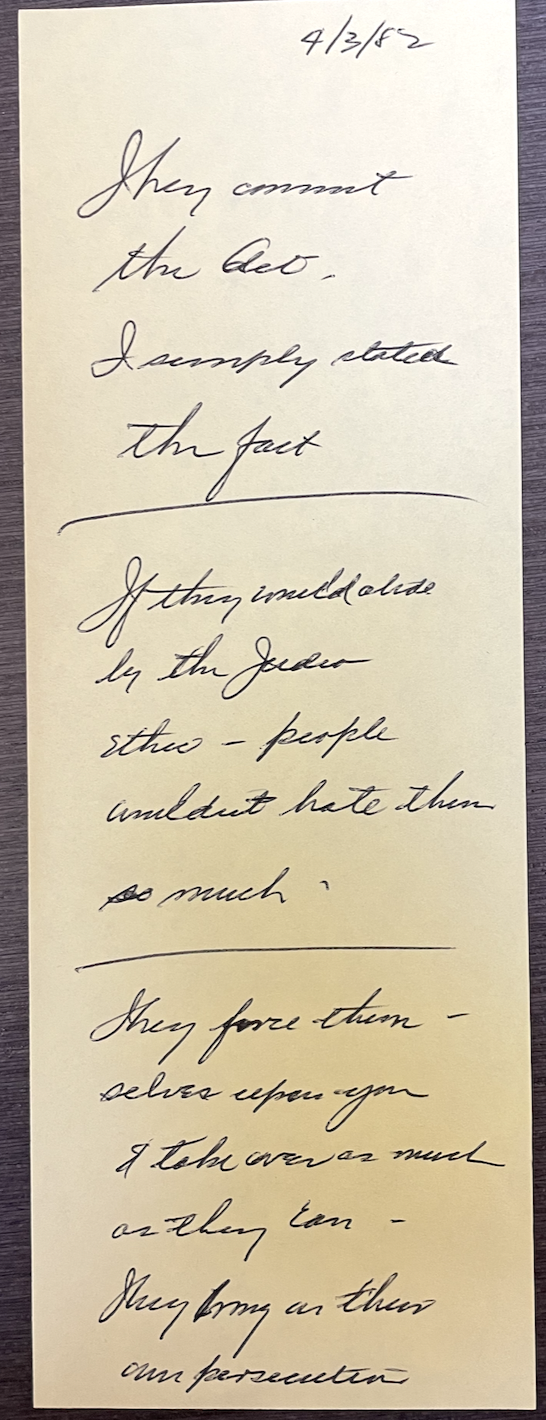 4/3/82
They commit
the Act.
I simply stated
the fact
If they would abide
by the Judeo
Ethic - people
wouldn't hate them
so much.
They force them -
selves upon you
& take over as much
as they can -
They bring on their
own persecution